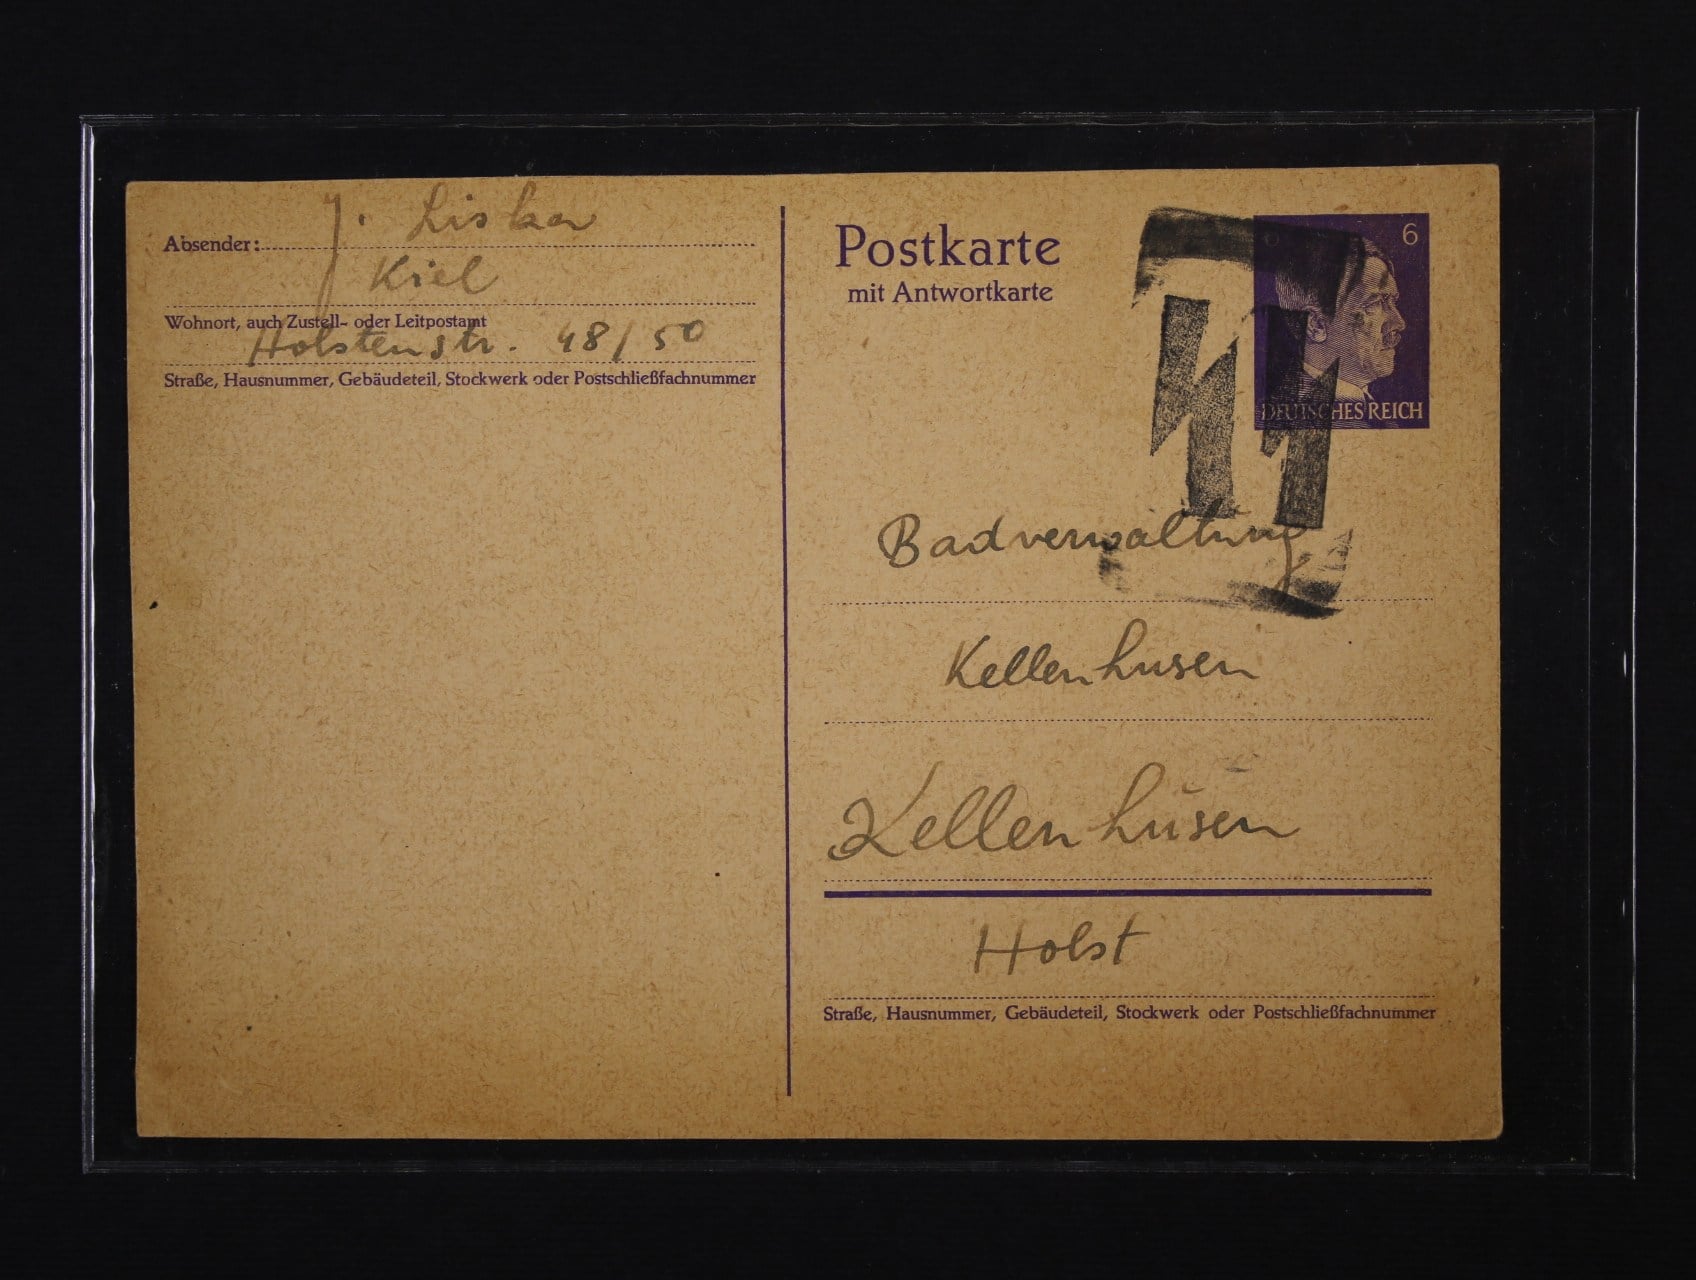 J. Liska
Absender:
Kiel
Wohnort, auch Zustell- oder Leitpostamt
Holstenstr. 48/50
Straße, Hausnummer, Gebäudeteil, Stockwerk oder Postschließfachnummer
Postkarte
mit Antwortkarte
6 6
DEUTSCHES REICH
Badverwaltung
Kellenhusen
Kellenhusen
Holst
Straße, Hausnummer, Gebäudeteil, Stockwerk oder Postschließfachnummer